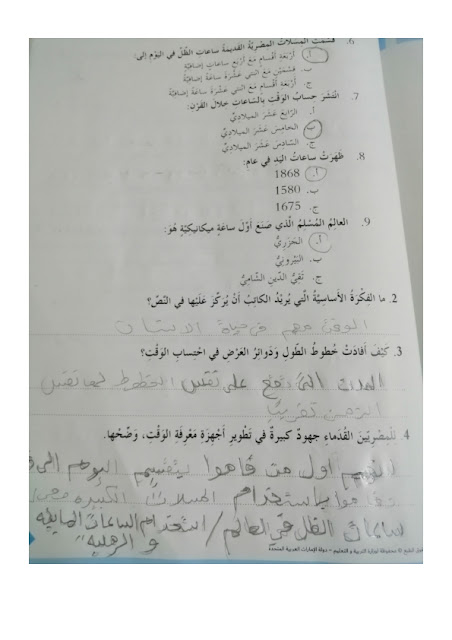 6. قَسَّمَتِ المِسَلّاتُ المِصْرِيَّةُ القَديمَةُ ساعاتِ الظِّلِّ في اليَوْمِ إلى:
أ. أَرْبَعَةِ أَقْسامٍ مَعَ أَرْبَعِ ساعاتٍ إضافِيَّةٍ
ب. قِسْمَيْنِ مَعَ اثْنَتَيْ عَشْرَةَ ساعَةً إضافِيَّةً
ج. أَرْبَعَةِ أَقْسامٍ مَعَ اثْنَتَيْ عَشْرَةَ ساعَةً إضافِيَّةً
7. انْتَشَرَ حِسابُ الوَقْتِ بِالسّاعاتِ خلالَ القَرْنِ:
أ. الرّابِعَ عَشَرَ الميلادِيِّ
ب. الخامِسَ عَشَرَ الميلادِيِّ
ج. السّادِسَ عَشَرَ الميلادِيِّ
8. ظَهَرَتْ ساعاتُ اليَدِ في عامِ:
أ. 1868
ب. 1580
ج. 1675
9. العالِمُ المُسْلِمُ الَّذي صَنَعَ أوَّلَ ساعَةٍ ميكانيكيَّةٍ هُوَ:
أ. الجَزَرِيُّ
ب. البَيْرونِيُّ
ج. تَقِيُّ الدّينِ الشّامِيُّ
2. ما الفِكْرَةُ الأَساسِيَّةُ الَّتي يُريدُ الكاتِبُ أَنْ يُرَكِّزَ عَلَيْها في النَّصِّ؟
الوقت مهم في حياة الانسان
3. كَيْفَ أَفادَتْ خُطوطُ الطّولِ وَدَوائِرُ العَرْضِ في احْتِسابِ الوَقْتِ؟
المدن التي تقع على نفس الخطوط لها نفس
الزمن تقريبًا
4. لِلْمِصْرِيّينَ القُدَماءِ جُهودٌ كَبيرَةٌ في تَطْويرِ أَجْهِزَةِ مَعْرِفَةِ الوَقْتِ، وَضِّحْها.
انهم اول من قاموا بتقسيم اليوم الى
وقاموا باستخدام المسلات الكبيرة
ساعات الظل في العالم / استخدام الساعات المائيه
و الرمليه
محفوظة لوزارة التربية و التعليم – دولة الإمارات العربية المتحدة